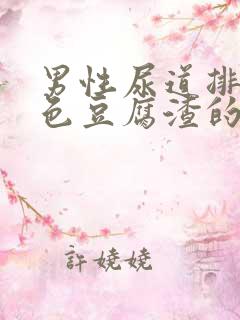 男性尿道排
色豆腐渣的
許嬈嬈